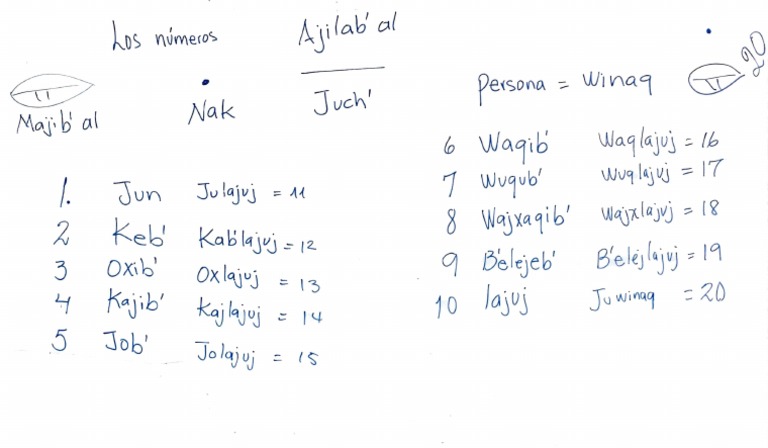 Los números
Ajilab'al
Majib'al
Nak
Juch'
1. Jun Julajuj = 11
2 Keb' Kab'lajuj = 12
3 Oxib' Oxlajuj = 13
4 Kajib' Kajlajuj = 14
5 Job' Jolajuj = 15
Persona = Winaq
20
6 Waqib' Waqlajuj = 16
7 Wuqub' Wuqlajuj = 17
8 Wajxaqib' Wajxlajuj = 18
9 B'elejeb' B'elejlajuj = 19
10 lajuj Juwinaq = 20